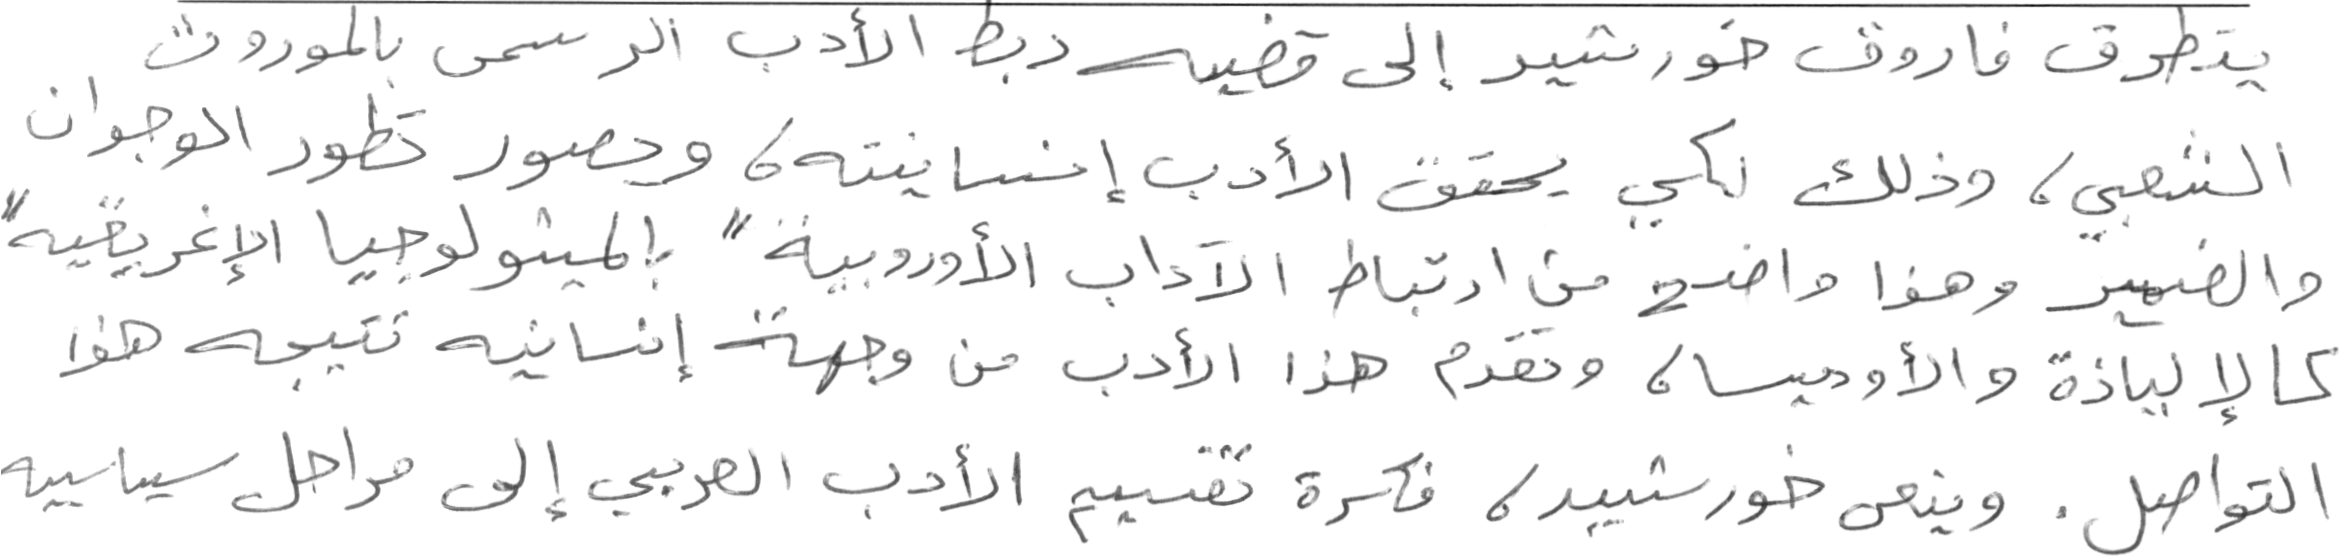 يتطرق فاروق خورشيد إلى قضيه ربط الأدب الرسمى بالموروث
الشعبي، وذلك لكي يحقق الأدب إنسانيته، ويصور تطور الوجدان
والضمير وهذا واضح من ارتباط الآداب الأوروبية "بالميثولوجيا الإغريقيه"
كالإلياذة والأوديسا، وتقدم هذا الأدب من وجهة إنسانيه نتيجه هذا
التواصل. وينعى خورشيد، فكرة تقسيم الأدب العربي إلى مراحل سياسيه